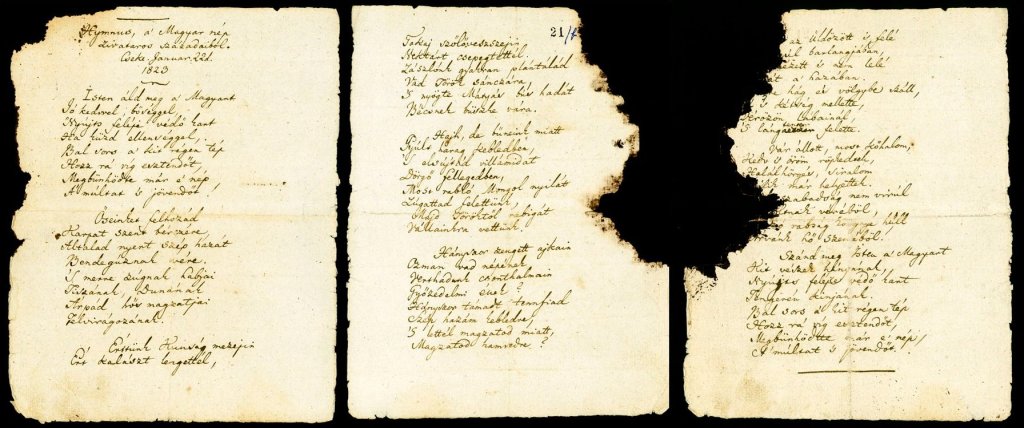 Hymnus, a Magyar nép
zivataros századaiból.
Cseke. Januar. 22d.
1823
Isten áld meg a Magyart
Jó kedvvel, bőséggel,
Nyújts feléje védő kart
Ha küzd ellenséggel;
Bal sors a kit régen tép
Hozz rá víg esztendőt,
Megbűnhődte már e' nép
A' múltat 's jövendőt.
Őseinket felhozád
Kárpát szent bérczére,
Általad nyert szép hazát
Bendegúznak vére.
'S merre zúgnak habjai
Tiszának, Dunának,
Árpád hős magzatjai
Felvirágozának.
Értünk Kunság mezejin
Ért kalászt lengettél,
21/
Tokaj szőlővesszejin
Nektárt csepegtettél.
Zászlónk gyakran plántálád
Vad Török sánczára,
'S nyögte Mátyás bús hadát
Bécsnek büszke vára.
Hajh, de bűneink miatt
Gyúlt harag kebledben,
'S elsújtád villámidat
Dörgő fellegedben,
Most rabló Mongol nyilát
Zúgattad felettünk,
Majd Töröktől rabigát
Vállainkra vettünk.
Hányszor zengett ajkain
Ozmán vad népének
Vert hadunk csonthalmain
Győzedelmi ének!
Hányszor támadt tenfiad
Szép hazám kebledre,
'S lettél magzatod miatt,
Magzatod hamvvedre?
az űldözött 's felé
barlangjában,
nézett 's nem lelé
a' hazában.
hág és völgybe száll,
's kétség mellette,
Vérözön lábainál,
'S lángtenger felette.
Vár állott, most kőhalom,
Kedv 's öröm röpkedtek,
Halálhörgés, siralom
már helyettek.
szabadság nem virúl
véréből,
rabság könnye hull
hő szeméből!
Szánd meg Isten a Magyart
Kit vészek hányának,
Nyújts feléje védő kart
Tengerén kínjának.
Bal sors a kit régen tép
Hozz rá víg esztendőt,
Megbűnhődte már e' nép
A' múltat 's jövendőt!